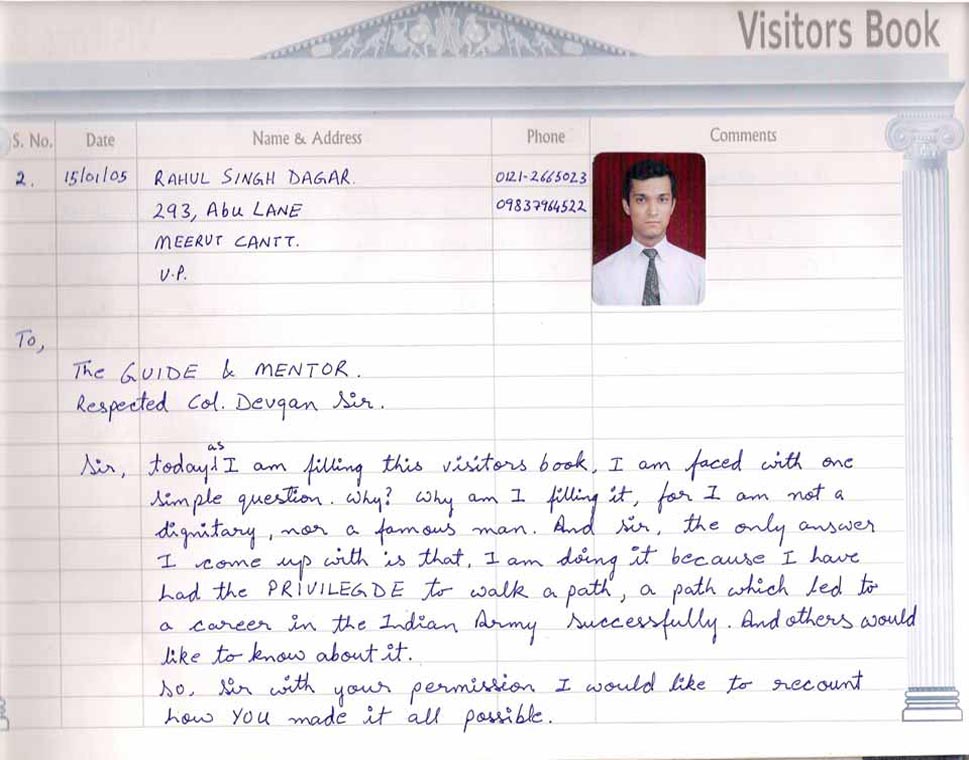 Visitors Book
S. No. Date Name & Address Phone Comments
2. 15/01/05 RAHUL SINGH DAGAR. 0121-2665023
293, Abu LANE 09837964522
MEERUT CANTT.
U.P.
To,
The GUIDE & MENTOR.
Respected Col. Devgan Sir.
Sir, today as I am filling this visitors book, I am faced with one
simple question. Why? Why am I filling it, for I am not a
dignitary, nor a famous man. And sir, the only answer
I come up with is that, I am doing it because I have
had the PRIVILEGDE to walk a path, a path which led to
a career in the Indian Army successfully. And others would
like to know about it.
So, Sir with your permission I would like to recount
how YOU made it all possible.